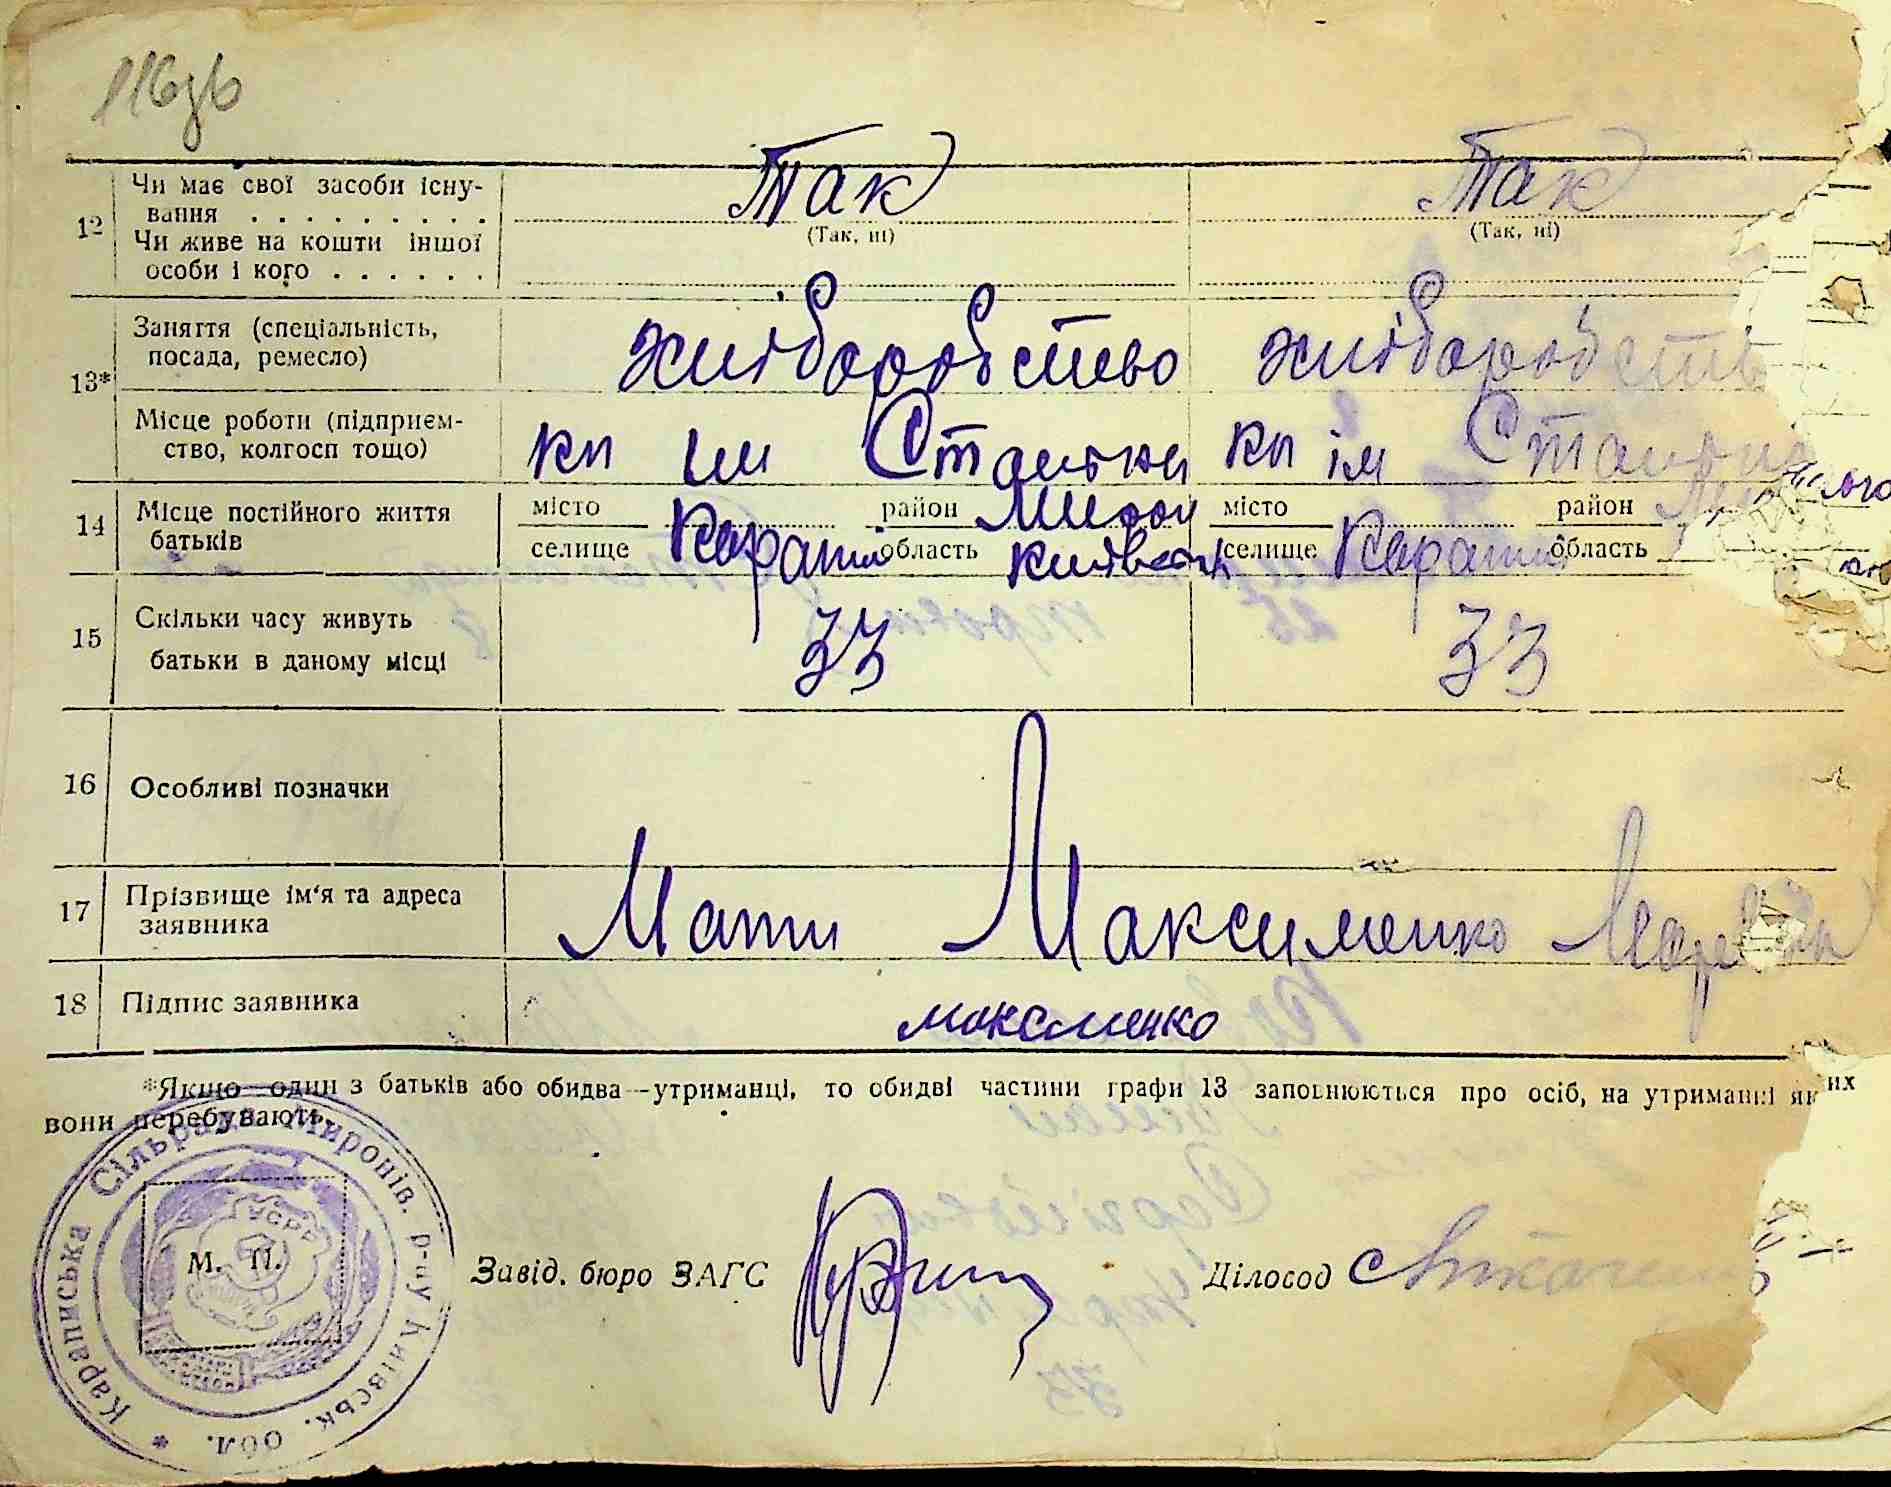 116зв
12 Чи має свої засоби існу-
вання . . . . . . . . . Так Так
(Так, ні) (Так, ні)
Чи живе на кошти іншої
особи і кого . . . . . .
13* Заняття (спеціальність,
посада, ремесло) хліборобство хліборобств
Місце роботи (підприєм-
ство, колгосп тощо) кп ім Сталіна кп ім Сталіна
14 Місце постійного життя
батьків
місто район Мирон місто район
селище Карапиші область Київська селище Карапиші область
15 Скільки часу живуть
батьки в даному місці 33 33
16 Особливі позначки
17 Прізвище ім'я та адреса
заявника Мати Максименко
18 Підпис заявника максименко
*Якщо один з батьків або обидва—утриманці, то обидві частини графи 13 заповнюються про осіб, на утриманні яких
вони перебувають.
Караписька Сільрада Миронів. р-ну Київськ. обл. *
УСРР
М. П.
Завід. бюро ЗАГС Діловод